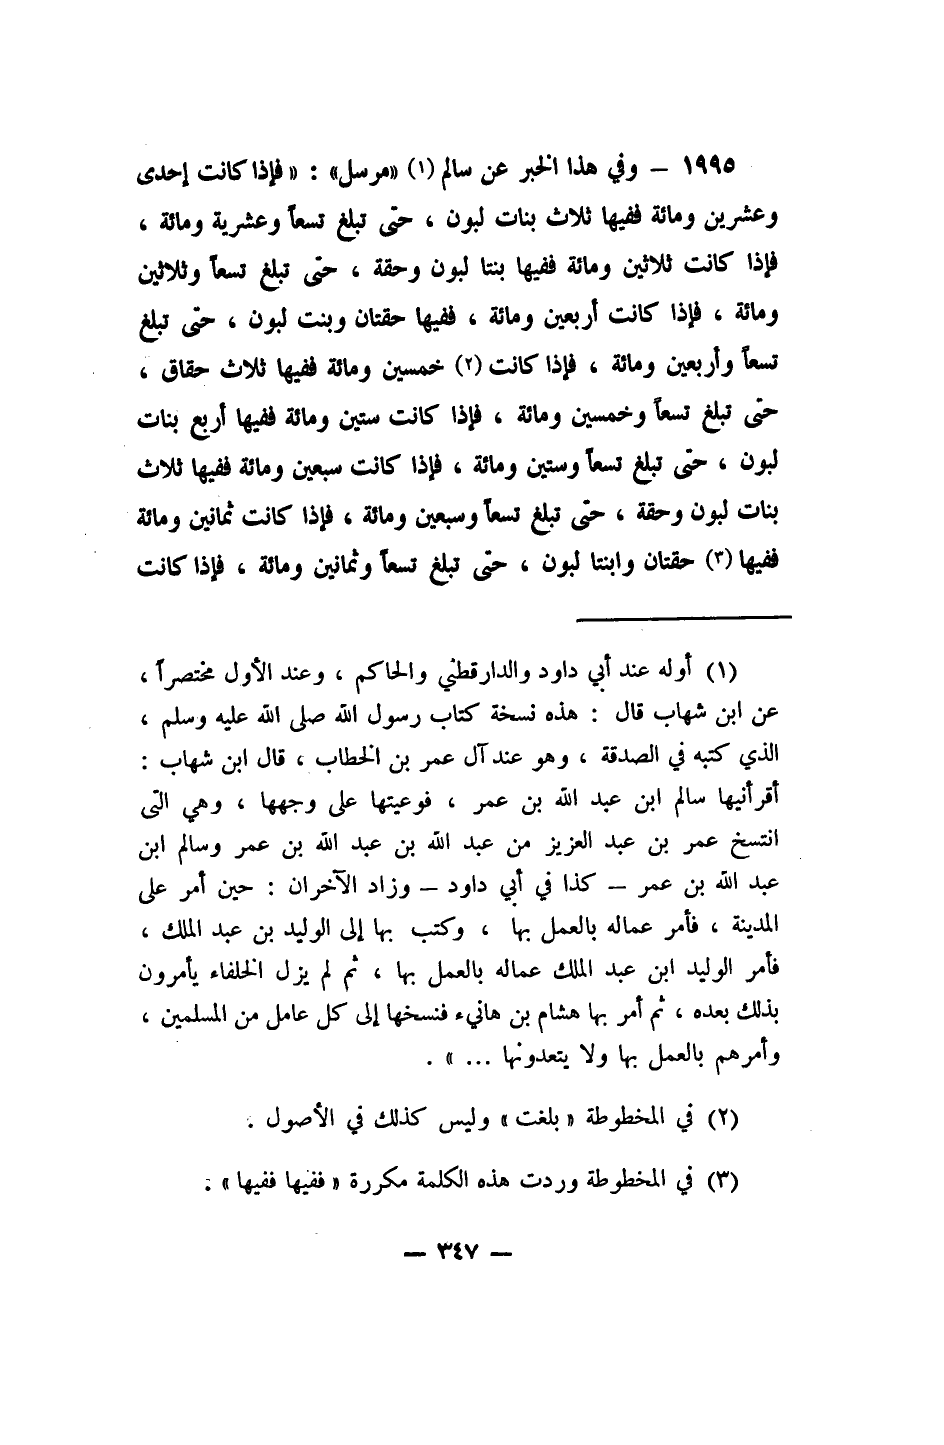 ١٩٩٥ – وفي هذا الخبر عن سالم (١) «مرسل» : « فإذا كانت إحدى
وعشرين ومائة ففيها ثلاث بنات لبون ، حتى تبلغ تسعاً وعشرية ومائة ،
فإذا كانت ثلاثين ومائة ففيها بنتا لبون وحقة ، حتى تبلغ تسعاً وثلاثين
ومائة ، فإذا كانت أربعين ومائة ، ففيها حقتان وبنت لبون ، حتى تبلغ
تسعاً وأربعين ومائة ، فإذا كانت (٢) خمسين ومائة ففيها ثلاث حقاق ،
حتى تبلغ تسعاً وخمسين ومائة ، فإذا كانت ستين ومائة ففيها أربع بنات
لبون ، حتى تبلغ تسعاً وستين ومائة ، فإذا كانت سبعين ومائة ففيها ثلاث
بنات لبون وحقة ، حتى تبلغ تسعاً وسبعين ومائة ، فإذا كانت ثمانين ومائة
ففيها (٣) حقتان وابنتا لبون ، حتى تبلغ تسعاً وثمانين ومائة ، فإذا كانت
(١) أوله عند أبي داود والدارقطني والحاكم ، وعند الأول مختصراً ،
عن ابن شهاب قال : هذه نسخة كتاب رسول الله صلى الله عليه وسلم ،
الذي كتبه في الصدقة ، وهو عند آل عمر بن الخطاب ، قال ابن شهاب :
أقرأنيها سالم ابن عبد الله بن عمر ، فوعيتها على وجهها ، وهي التى
انتسخ عمر بن عبد العزيز من عبد الله بن عبد الله بن عمر وسالم ابن
عبد الله بن عمر – كذا في أبي داود – وزاد الآخران : حين أمر على
المدينة ، فأمر عماله بالعمل بها ، وكتب بها إلى الوليد بن عبد الملك ،
فأمر الوليد ابن عبد الملك عماله بالعمل بها ، ثم لم يزل الخلفاء يأمرون
بذلك بعده ، ثم أمر بها هشام بن هانيء فنسخها إلى كل عامل من المسلمين ،
وأمرهم بالعمل بها ولا يتعدونها ... » .
(٢) في المخطوطة « بلغت » وليس كذلك في الأصول .
(٣) في المخطوطة وردت هذه الكلمة مكررة « ففيها ففيها » .
– ٣٤٧ –